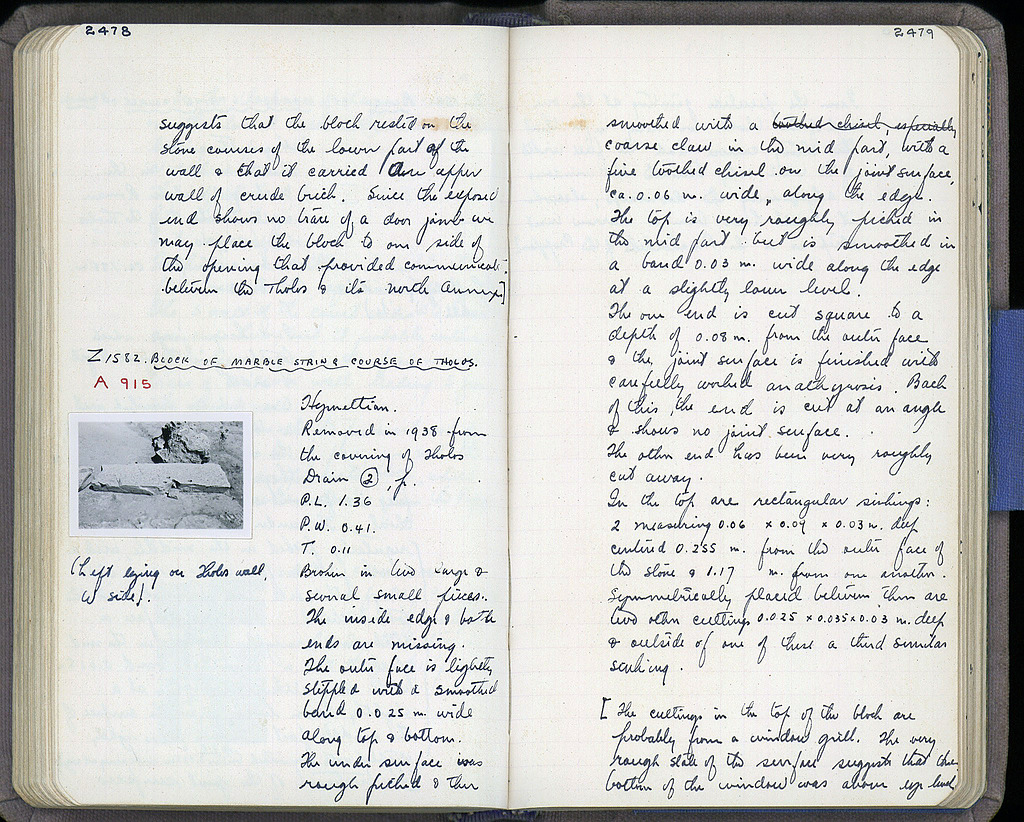 2478
suggests that the block rested on the
stone courses of the lower part of the
wall & that it carried the upper
wall of crude brick. Since the exposed
end shows no trace of a door jamb we
may place the block to one side of
the opening that provided communicat.
between the Tholos & its north Annex]
Z1582. BLOCK OF MARBLE STRING COURSE OF THOLOS.
A 915
Hymettian.
Removed in 1938 from
the covering of Tholos
Drain 2, f.
P.L. 1.36
P.W. 0.41.
T. 0.11
(Left lying on Tholos wall,
W side).
Broken in two large &
several small pieces.
The inside edge & both
ends are missing.
The outer face is lightly
stippled with a smoothed
band 0.025 m. wide
along top & bottom.
The under surface was
rough picked & then
2479
smoothed with a toothed chisel, especially
coarse claw in the mid part, with a
fine toothed chisel on the joint surface,
ca. 0.06 m. wide, along the edge.
The top is very roughly picked in
the mid part but is smoothed in
a band 0.03 m. wide along the edge
at a slightly lower level.
The one end is cut square to a
depth of 0.08 m. from the outer face
& the joint surface is finished with
carefully worked anathyrosis. Back
of this, the end is cut at an angle
& shows no joint surface.
The other end has been very roughly
cut away.
In the top are rectangular sinkings:
2 measuring 0.06 x 0.09 x 0.03 m. deep
centered 0.255 m. from the outer face of
the stone & 1.17 m. from one another.
Symmetrically placed between them are
two other cuttings 0.025 x 0.035 x 0.03 m. deep
& outside of one of these a third similar
sinking.
[ The cuttings in the top of the block are
probably from a window grill. The very
rough state of the surface suggests that the
bottom of the window was above eye level